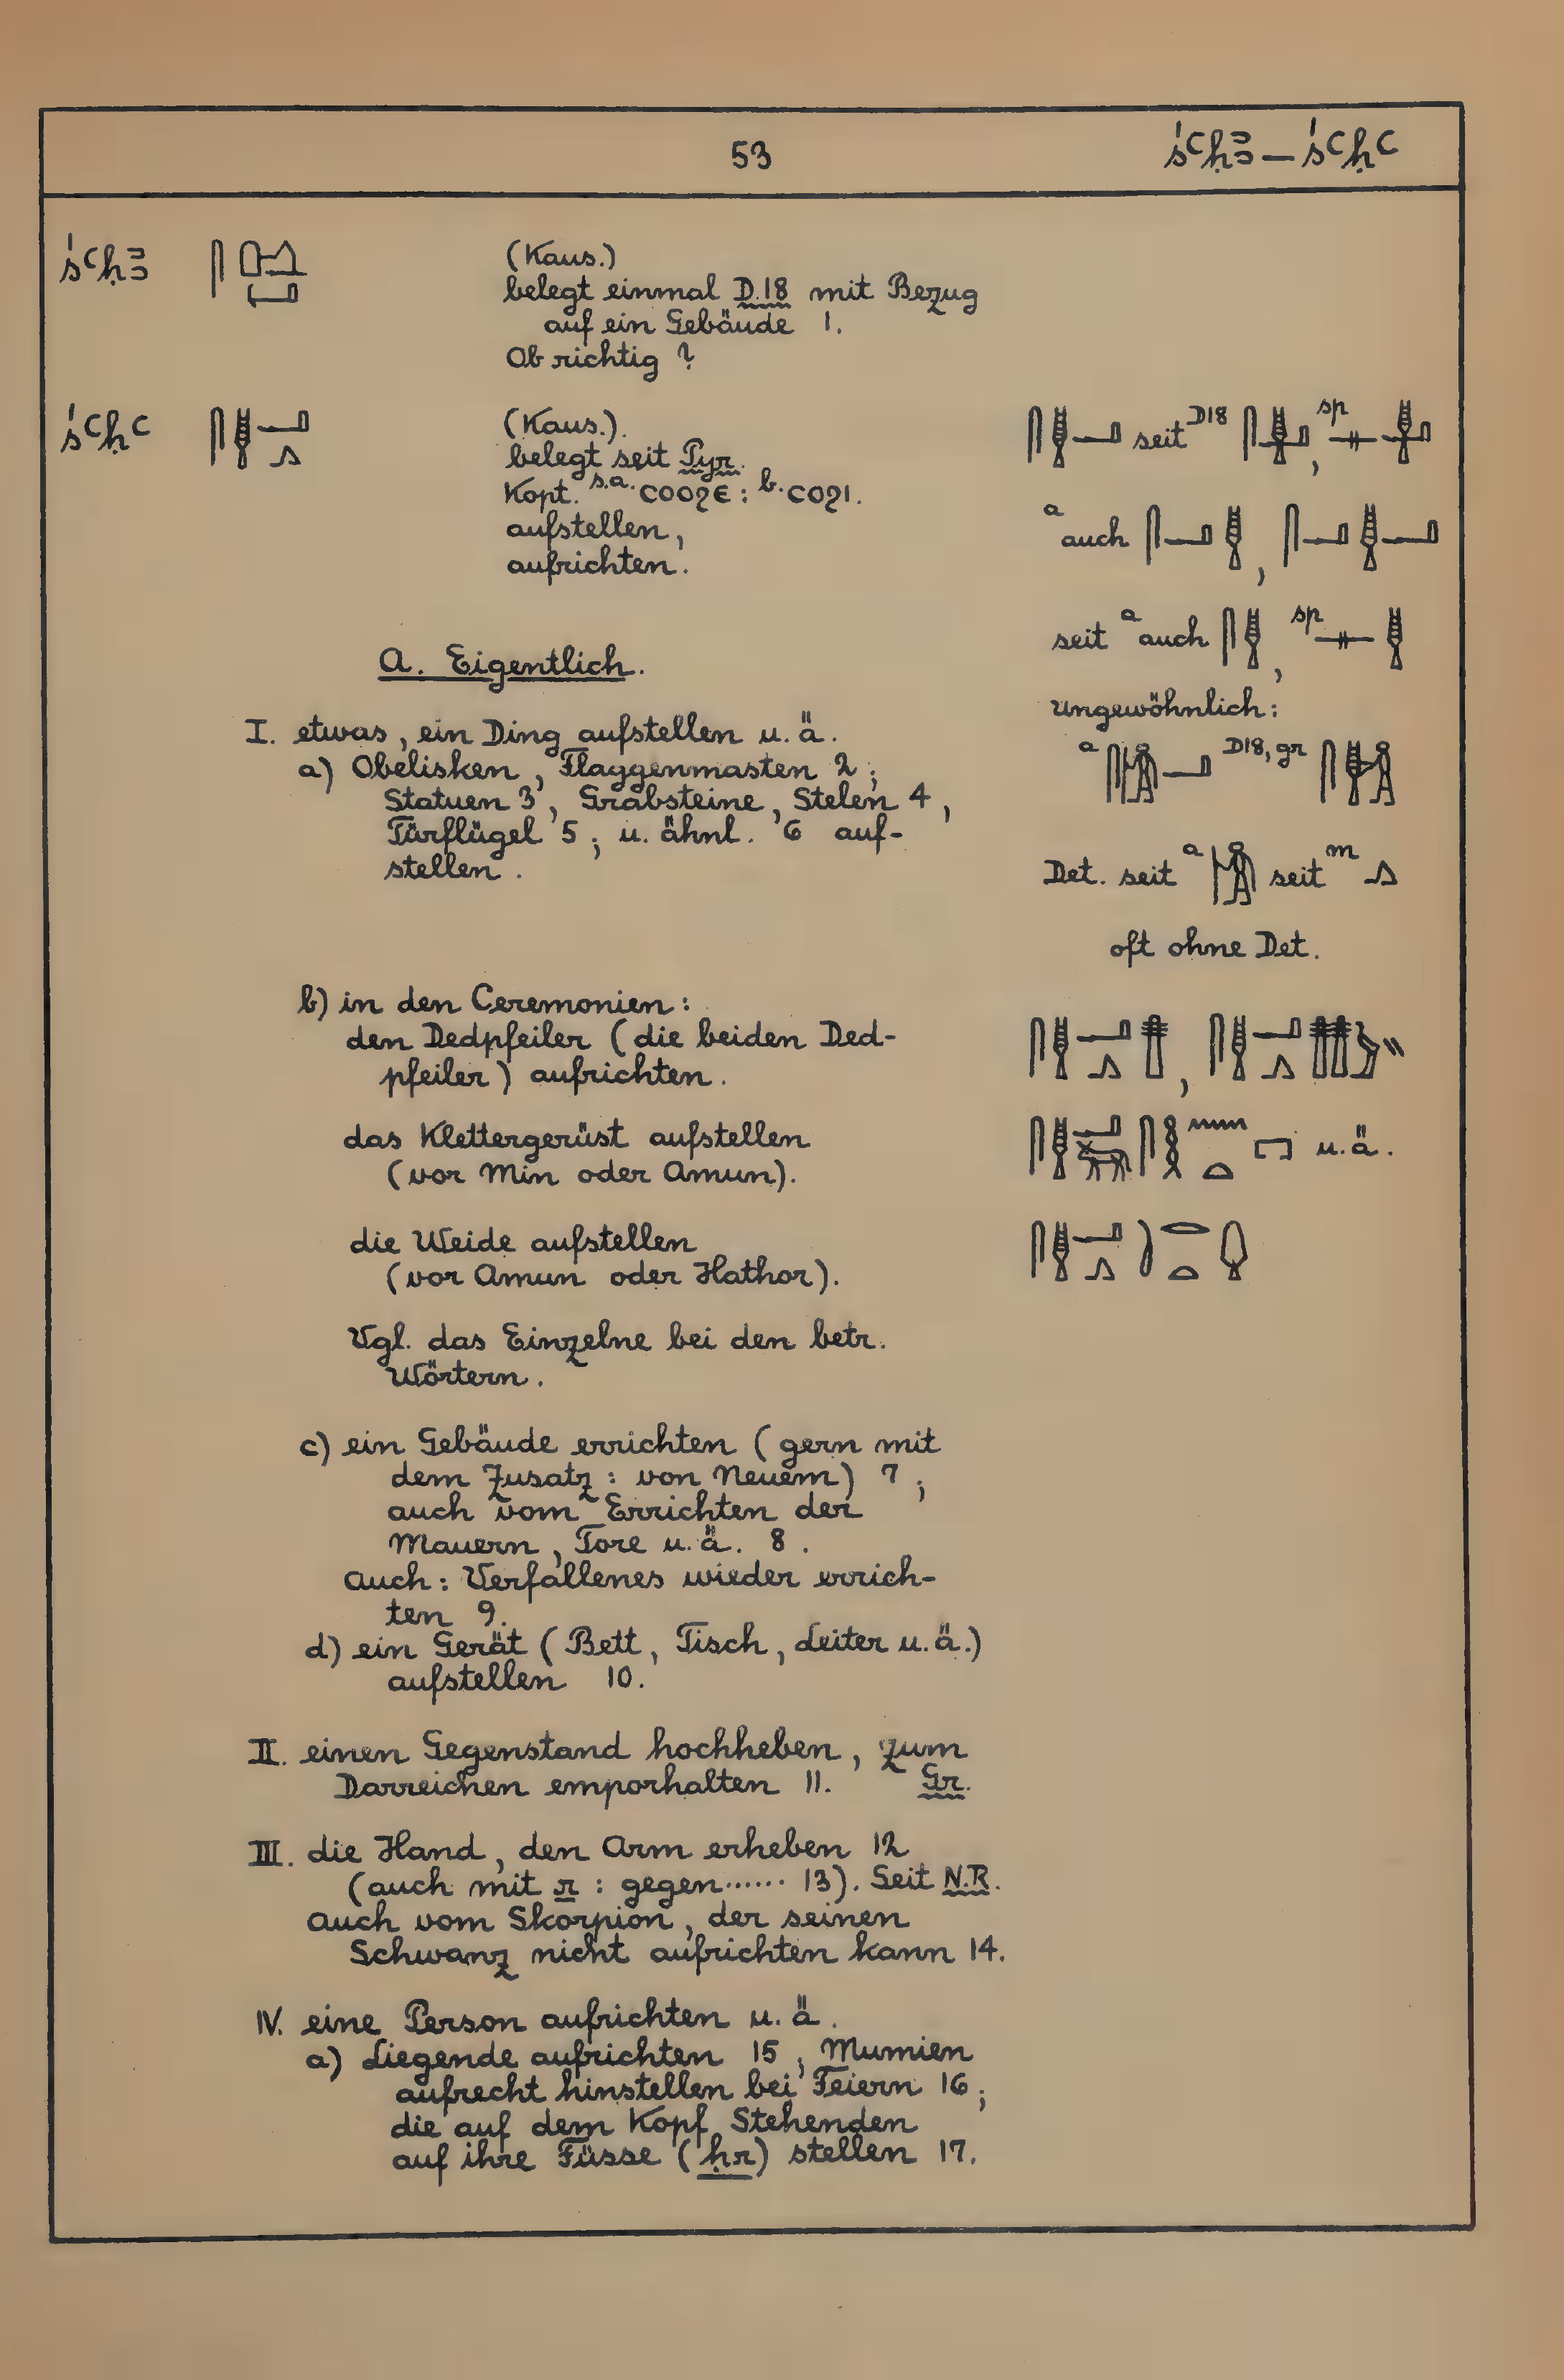 53
śꜥḥꜣ – śꜥḥꜥ
śꜥḥꜣ
(Kaus.)
belegt einmal D.18 mit Bezug
auf ein Gebäude 1.
Ob richtig?
śꜥḥꜥ
(Kaus.).
belegt seit Pyr.
Kopt. s.a. ⲥⲟⲟϩⲉ : b. ⲥⲟϩⲓ.
aufstellen,
aufrichten.
seit D18 , sp
a auch ,
seit a auch , sp
ungewöhnlich:
a D18, gr
Det. seit a seit m
oft ohne Det.
A. Eigentlich.
I. etwas, ein Ding aufstellen u. ä.
a) Obelisken, Flaggenmasten 2;
Statuen 3, Grabsteine, Stelen 4,
Türflügel 5; u. ähnl. 6 auf-
stellen.
b) in den Ceremonien:
den Dedpfeiler (die beiden Ded-
pfeiler) aufrichten.
das Klettergerüst aufstellen
(vor Min oder Amun).
u. ä.
die Weide aufstellen
(vor Amun oder Hathor).
Vgl. das Einzelne bei den betr.
Wörtern.
c) ein Gebäude errichten (gern mit
dem Zusatz: von Neuem) 7;
auch vom Errichten der
Mauern, Tore u. ä. 8.
Auch: Verfallenes wieder errich-
ten 9.
d) ein Gerät (Bett, Tisch, Leiter u. ä.)
aufstellen 10.
II. einen Gegenstand hochheben, zum
Darreichen emporhalten 11. Gr.
III. die Hand, den Arm erheben 12
(auch mit r : gegen...... 13). Seit N.R.
Auch vom Skorpion, der seinen
Schwanz nicht aufrichten kann 14.
IV. eine Person aufrichten u. ä.
a) Liegende aufrichten 15; Mumien
aufrecht hinstellen bei Feiern 16;
die auf dem Kopf Stehenden
auf ihre Füsse (ḥr) stellen 17.